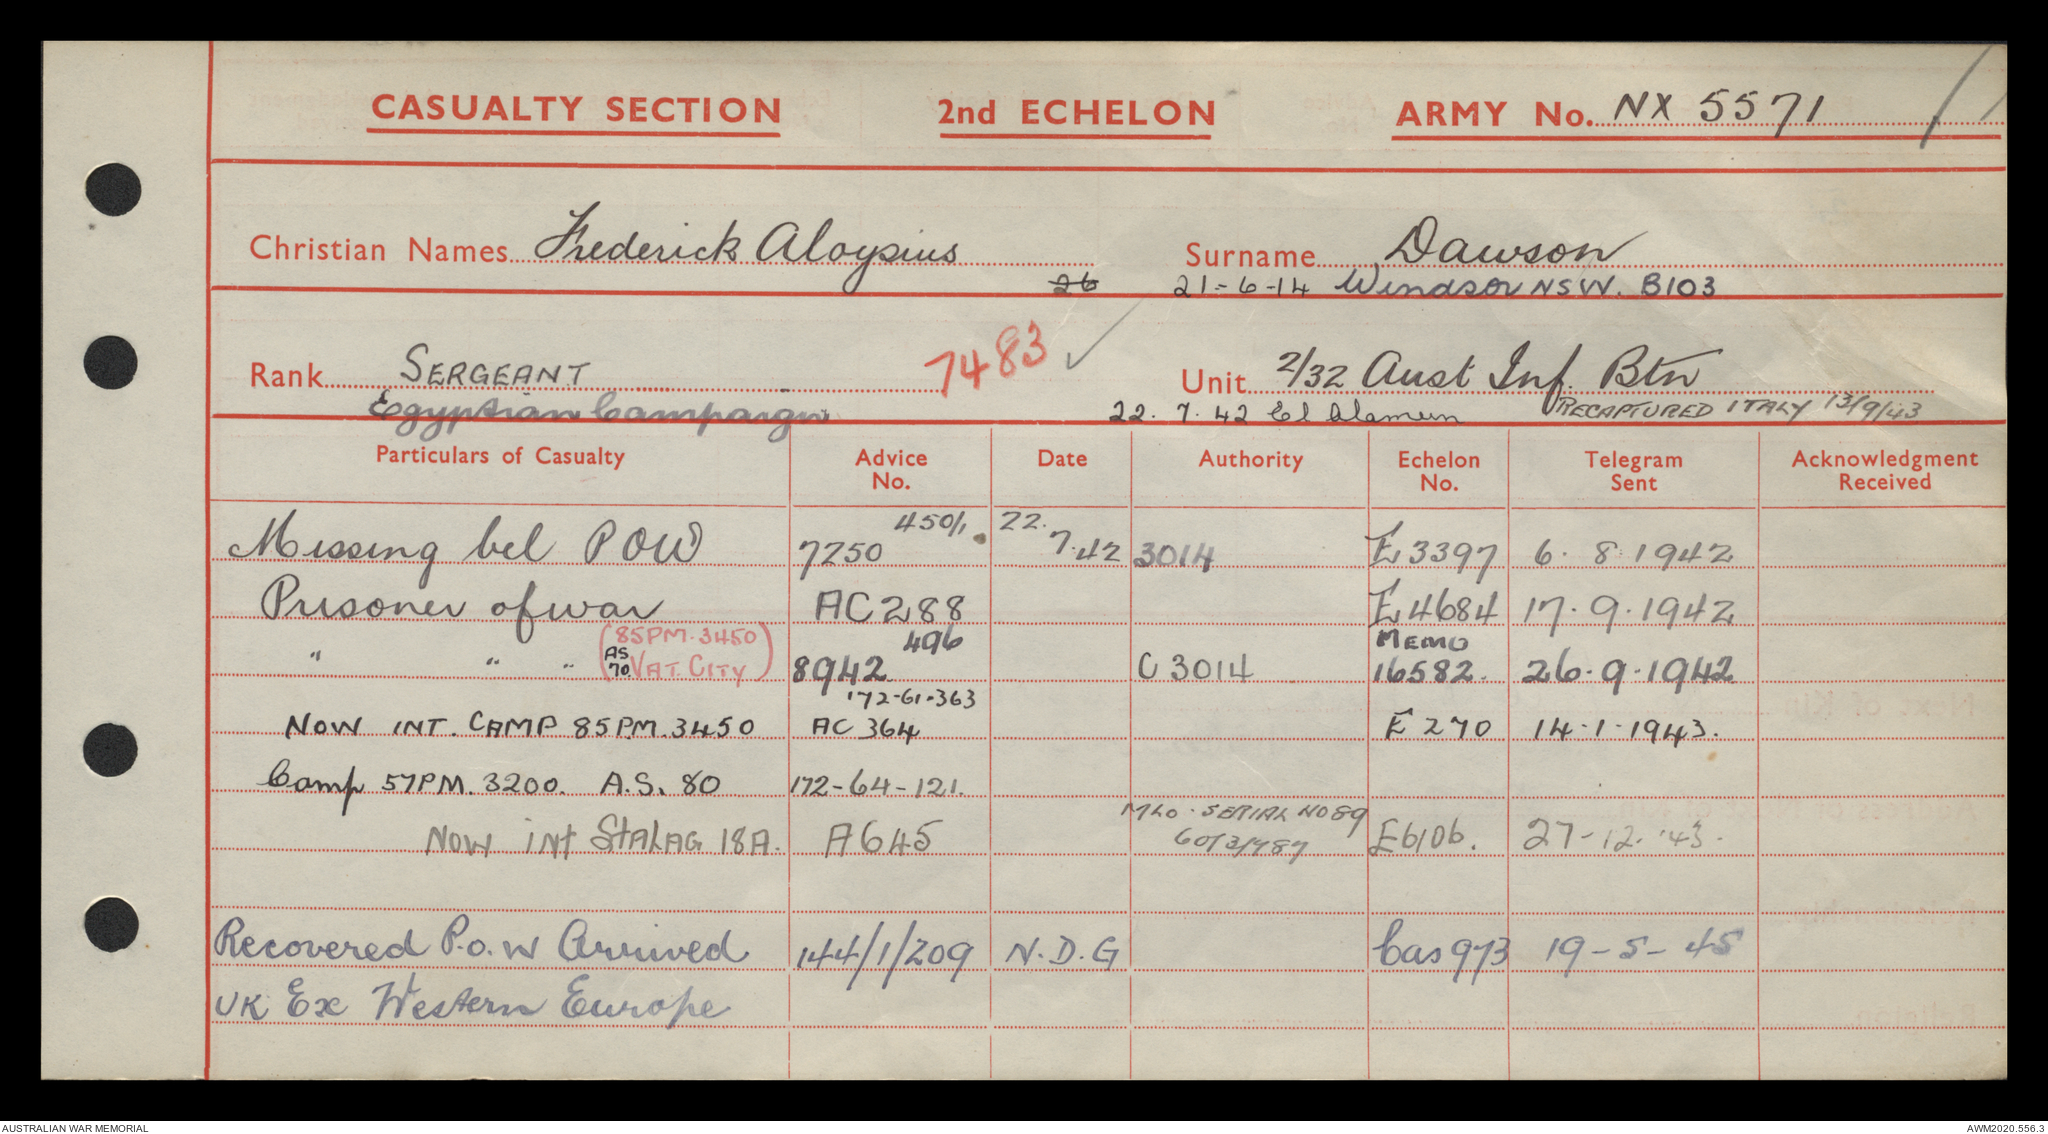 CASUALTY SECTION 2nd ECHELON ARMY No. NX 5571
Christian Names Frederick Aloysius Surname Dawson
26 21-6-14 Windsor NSW. B103
Rank SERGEANT 7483 Unit 2/32 Aust Inf. Btn
Egyptian Campaign 22.7.42 El Alamein RECAPTURED ITALY 13/9/43
Particulars of Casualty Advice No. Date Authority Echelon No. Telegram Sent Acknowledgment Received
450/1. 22.
Missing bel POW 7250 7.42 3014 E3397 6.8.1942
Prisoner of war AC288 E4684 17.9.1942
(85PM.3450 496 MEMO
" " " AS 70. VAT. CITY) 8942 C3014 16582. 26.9.1942
172-61-363
NOW INT. CAMP 85P.M. 3450 AC 364 E 270 14-1-1943.
Camp 57PM. 3200. A.S. 80 172-64-121.
MLO. SERIAL NO 89
NOW INT STALAG 18A. A645 E6106. 27-12.'43.
Recovered P.O.W Arrived 144/1/209 N.D.G Cas 973 19-5-45
UK Ex Western Europe
AUSTRALIAN WAR MEMORIAL AWM2020.556.3